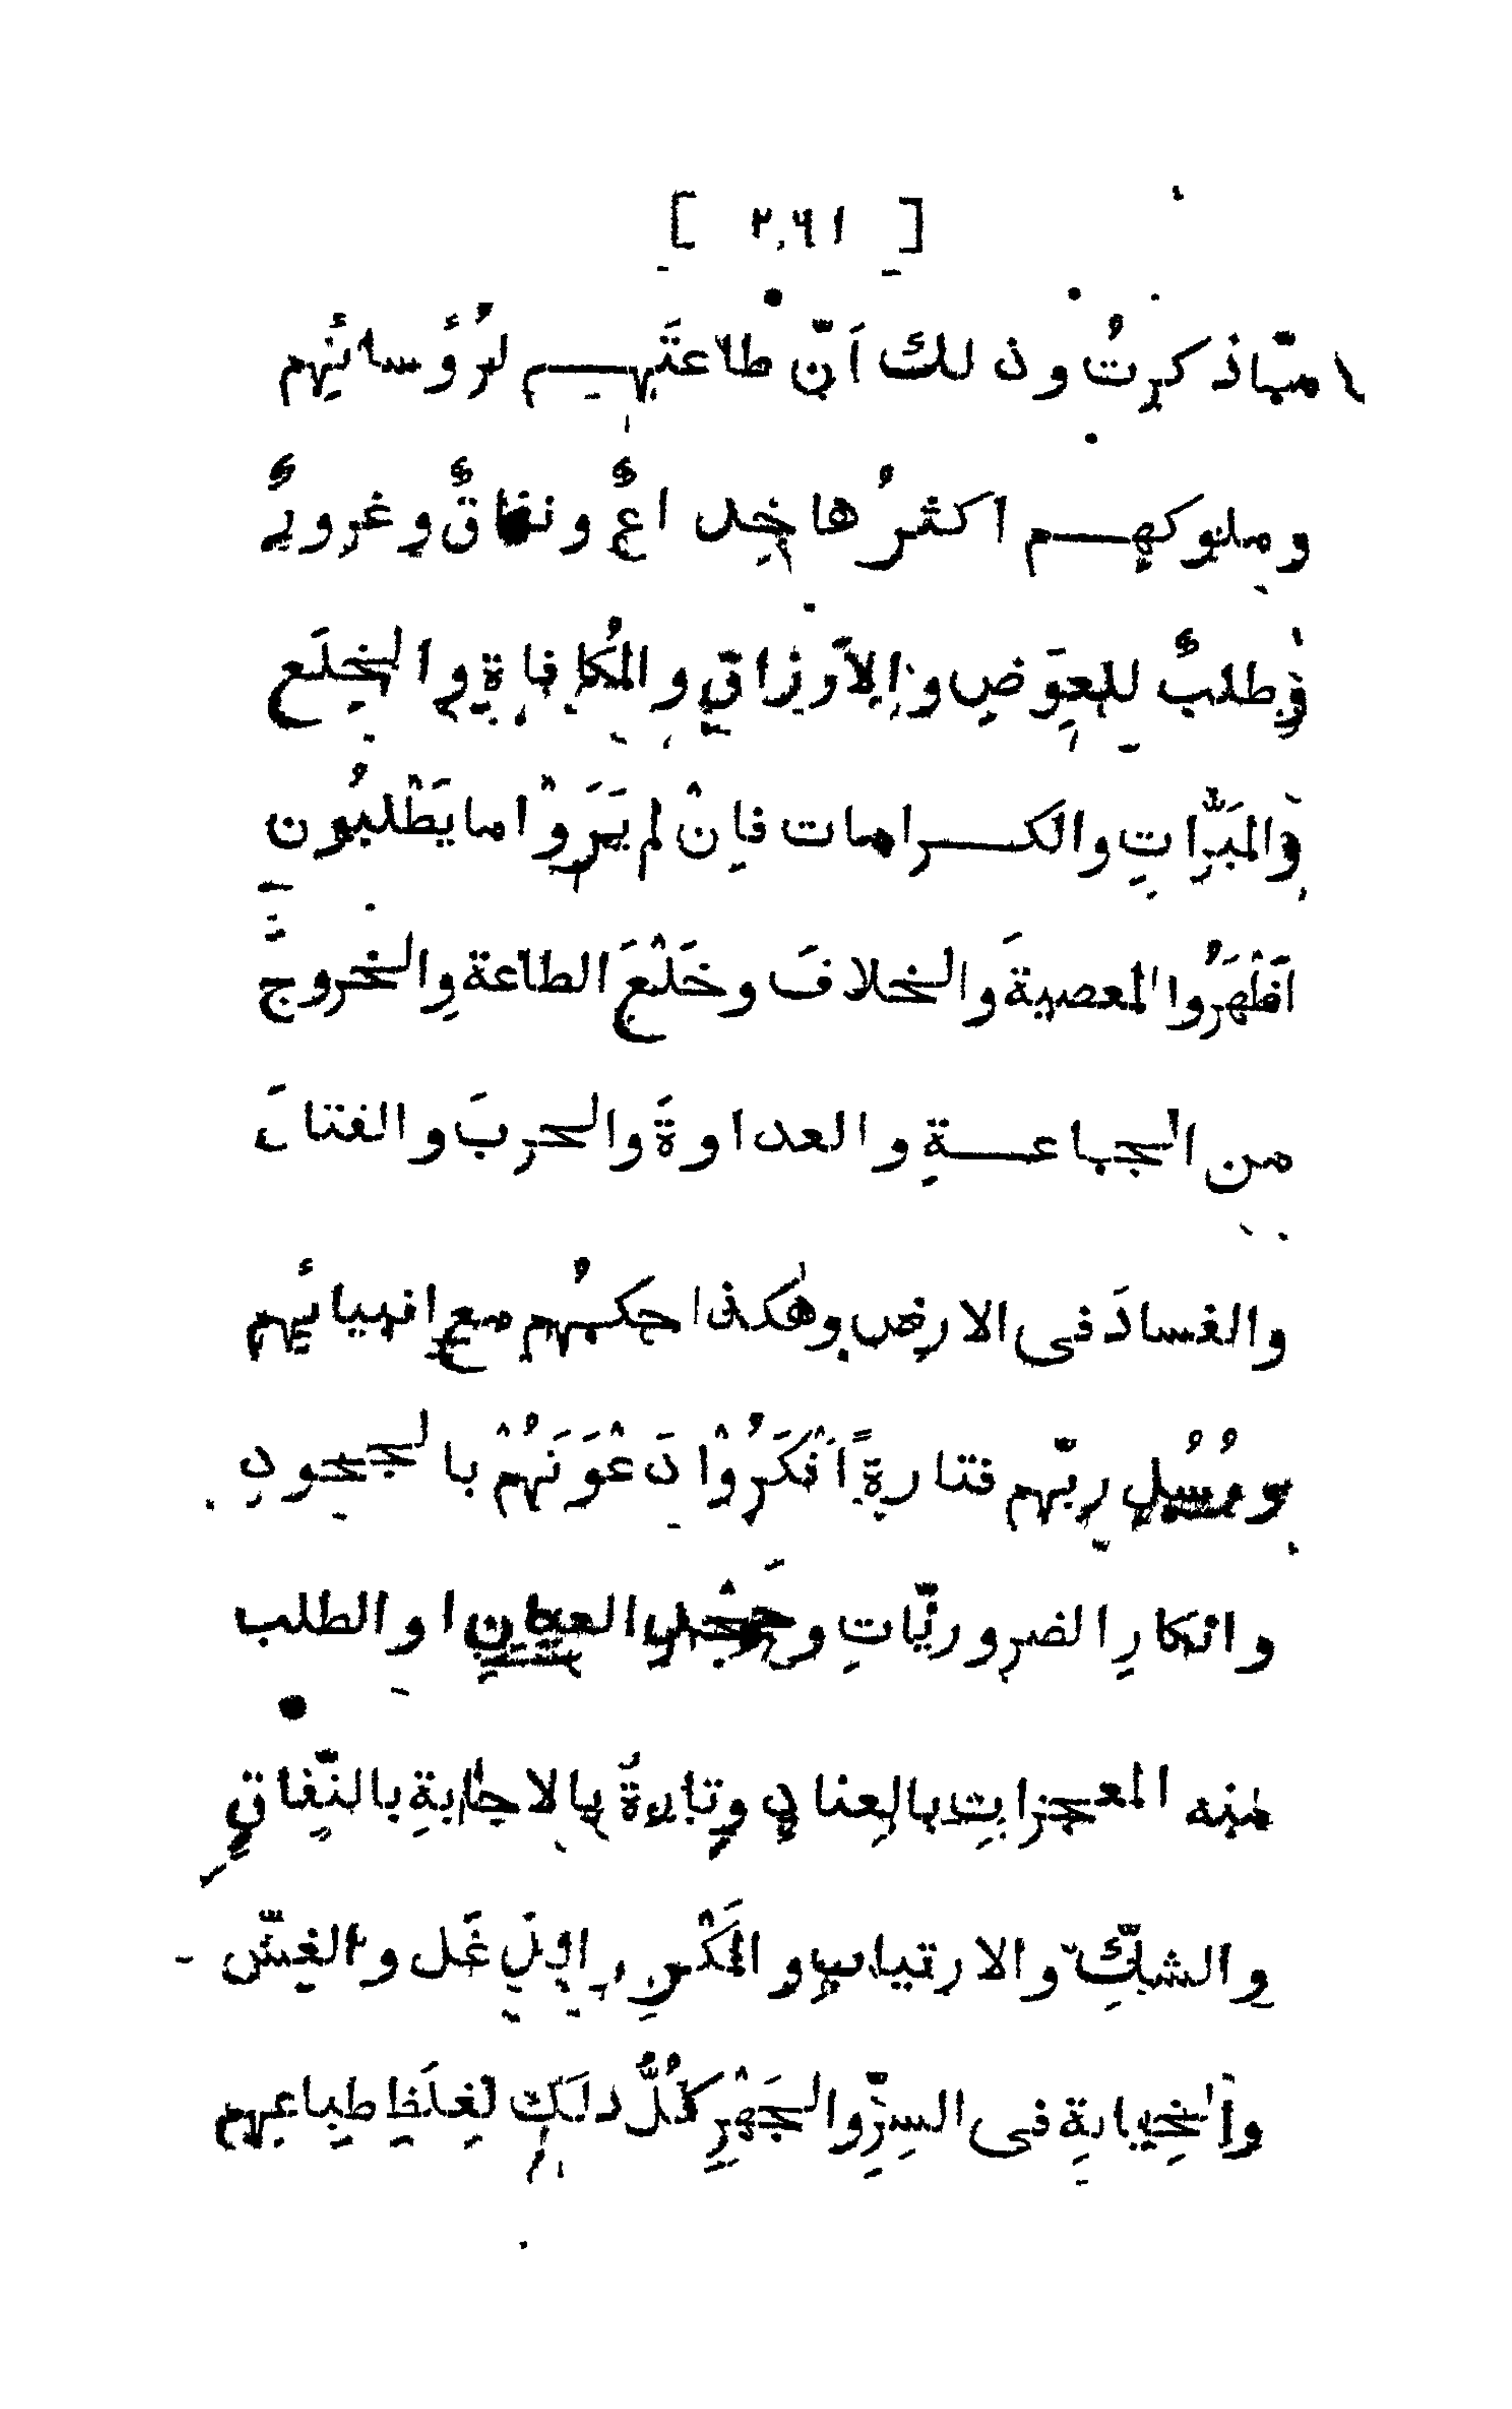 [ ٢٩١ ]
ممّا ذكرتُ وذلك اَنّ طاعتَهم لرُؤسائِهم
وملوكهم اكثرُها خِداعٌ ونفاقٌ وغرورٌ
وطلبٌ للعِوَضِ والاَرزاقِ والمُكافاةِ والخِلَع
والمَبَرّاتِ والكرامات فاِنْ لم يَرَوْا ما يَطْلبُون
اَظْهَرُوا المعصيةَ والخلافَ وخَلْعَ الطاعة والخروجَ
من الجماعةِ والعداوةَ والحربَ والقتالَ
والفسادَ فى الارضِ وهكذا حكمُهم مع انبيائِهم
ورُسُلِ ربّهم فتارةً اَنْكَرُوْا دَعْوَتَهُمْ بالجحودِ
وانكارِ الضروريّاتِ وجَحْدِ العيانِ او الطلب
منه المعجزاتِ بالعنادِ وتارةً بالاجابةِ بالنّفاقِ
والشكِّ والارتيابِ والمَكْرِ والدَغَل والغِشّ
والخِيانةِ فى السِرِّ والجَهْرِ كُلُّ ذلك لِغلَظِ طباعِهم